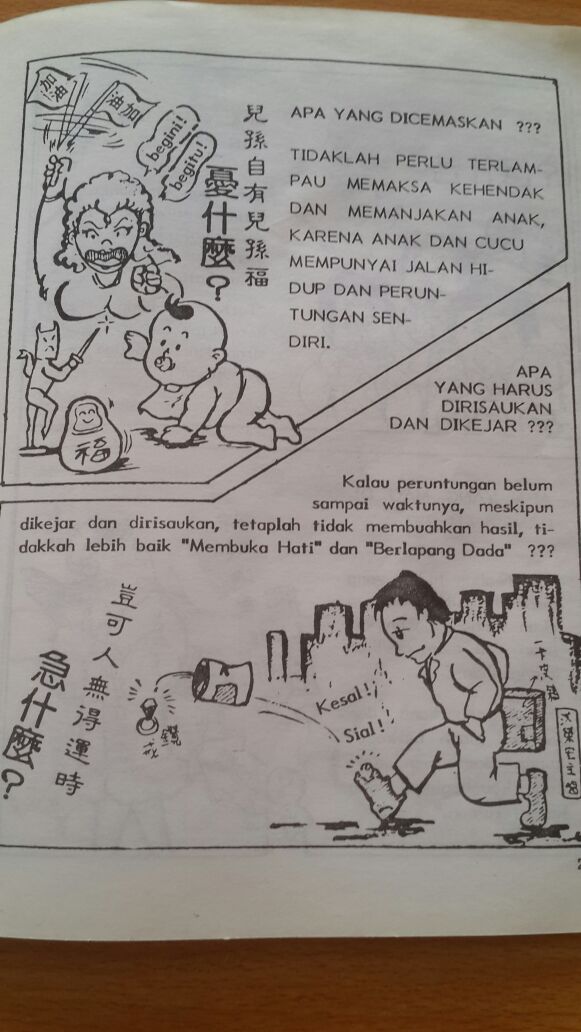 加油
油加
begini!
begitu!
兒孫自有兒孫福
憂什麼？
APA YANG DICEMASKAN ???
TIDAKLAH PERLU TERLAM-
PAU MEMAKSA KEHENDAK
DAN MEMANJAKAN ANAK,
KARENA ANAK DAN CUCU
MEMPUNYAI JALAN HI-
DUP DAN PERUN-
TUNGAN SEN-
DIRI.
福
APA
YANG HARUS
DIRISAUKAN
DAN DIKEJAR ???
Kalau peruntungan belum
sampai waktunya, meskipun
dikejar dan dirisaukan, tetaplah tidak membuahkan hasil, ti-
dakkah lebih baik "Membuka Hati" dan "Berlapang Dada" ???
豈可人無得運時
急什麼？
Kesal!
Sial!